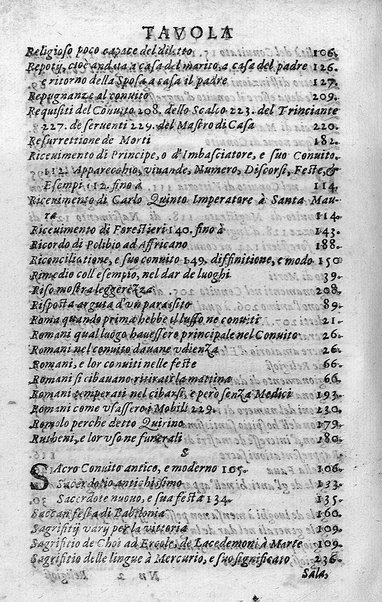 TAVOLA
Religioso poco capace del diletto 106.
Repoty, cioè andata a casa del marito, a casa del padre 126.
e ritorno della Sposa a casa il padre 127.
Repugnanza al conuito 209.
Requisiti del Conuito 208. dello Scalco 223. del Trinciante
227. de seruenti 229. del Mastro di Casa 220.
Resurrettione de Morti 182.
Riceuimento di Principe, o d'Imbasciatore, e suo Conuito.
112. Apparecchio, viuande, Numero, Discorsi, Feste, &
Esempi 112. fino a 114.
Riceuimento di Carlo Quinto Imperatore à Santa Mau-
ra 114.
Riceuimento di Forestieri 140. fino à 143.
Ricordo di Polibio ad Affricano 188.
Riconciliatione, e suo conuito 149. diffinitione, e modo 150
Rimedio coll'esempio, nel dar de luoghi 39.
Riso mostra leggerezza 208.
Risposta arguta d'un parasito 89.
Roma quando prima hebbe il lusso ne conuiti 21.
Romani qual luogo hauessero principale nel Conuito 26.
Romani nel conuito dauano vdienza 26.
Romani, e lor conuiti nelle feste 66.
Romani si cibauano ritirati la mattina 66.
Romani temperati nel cibarsi, e però senza Medici 193.
Romani come vsassero i Mobili 229. 230.
Romolo perche detto Quirino 179.
Rutheni, e lor vso ne funerali 180.
S
SAcro Conuito antico, e moderno 105. 106.
Sacerdotio antichissimo 133.
Sacerdote nuouo, e sua festa 134. 135.
Saccan festa di Babilonia 160.
Sagrifitij vary per la vittoria 109.
Sagrifitio de Choi ad Ercole, de Lacedemoni à Marte 109.
Sagrifitio delle lingue à Mercurio, e suo significato 236.
N n 2
SALA,